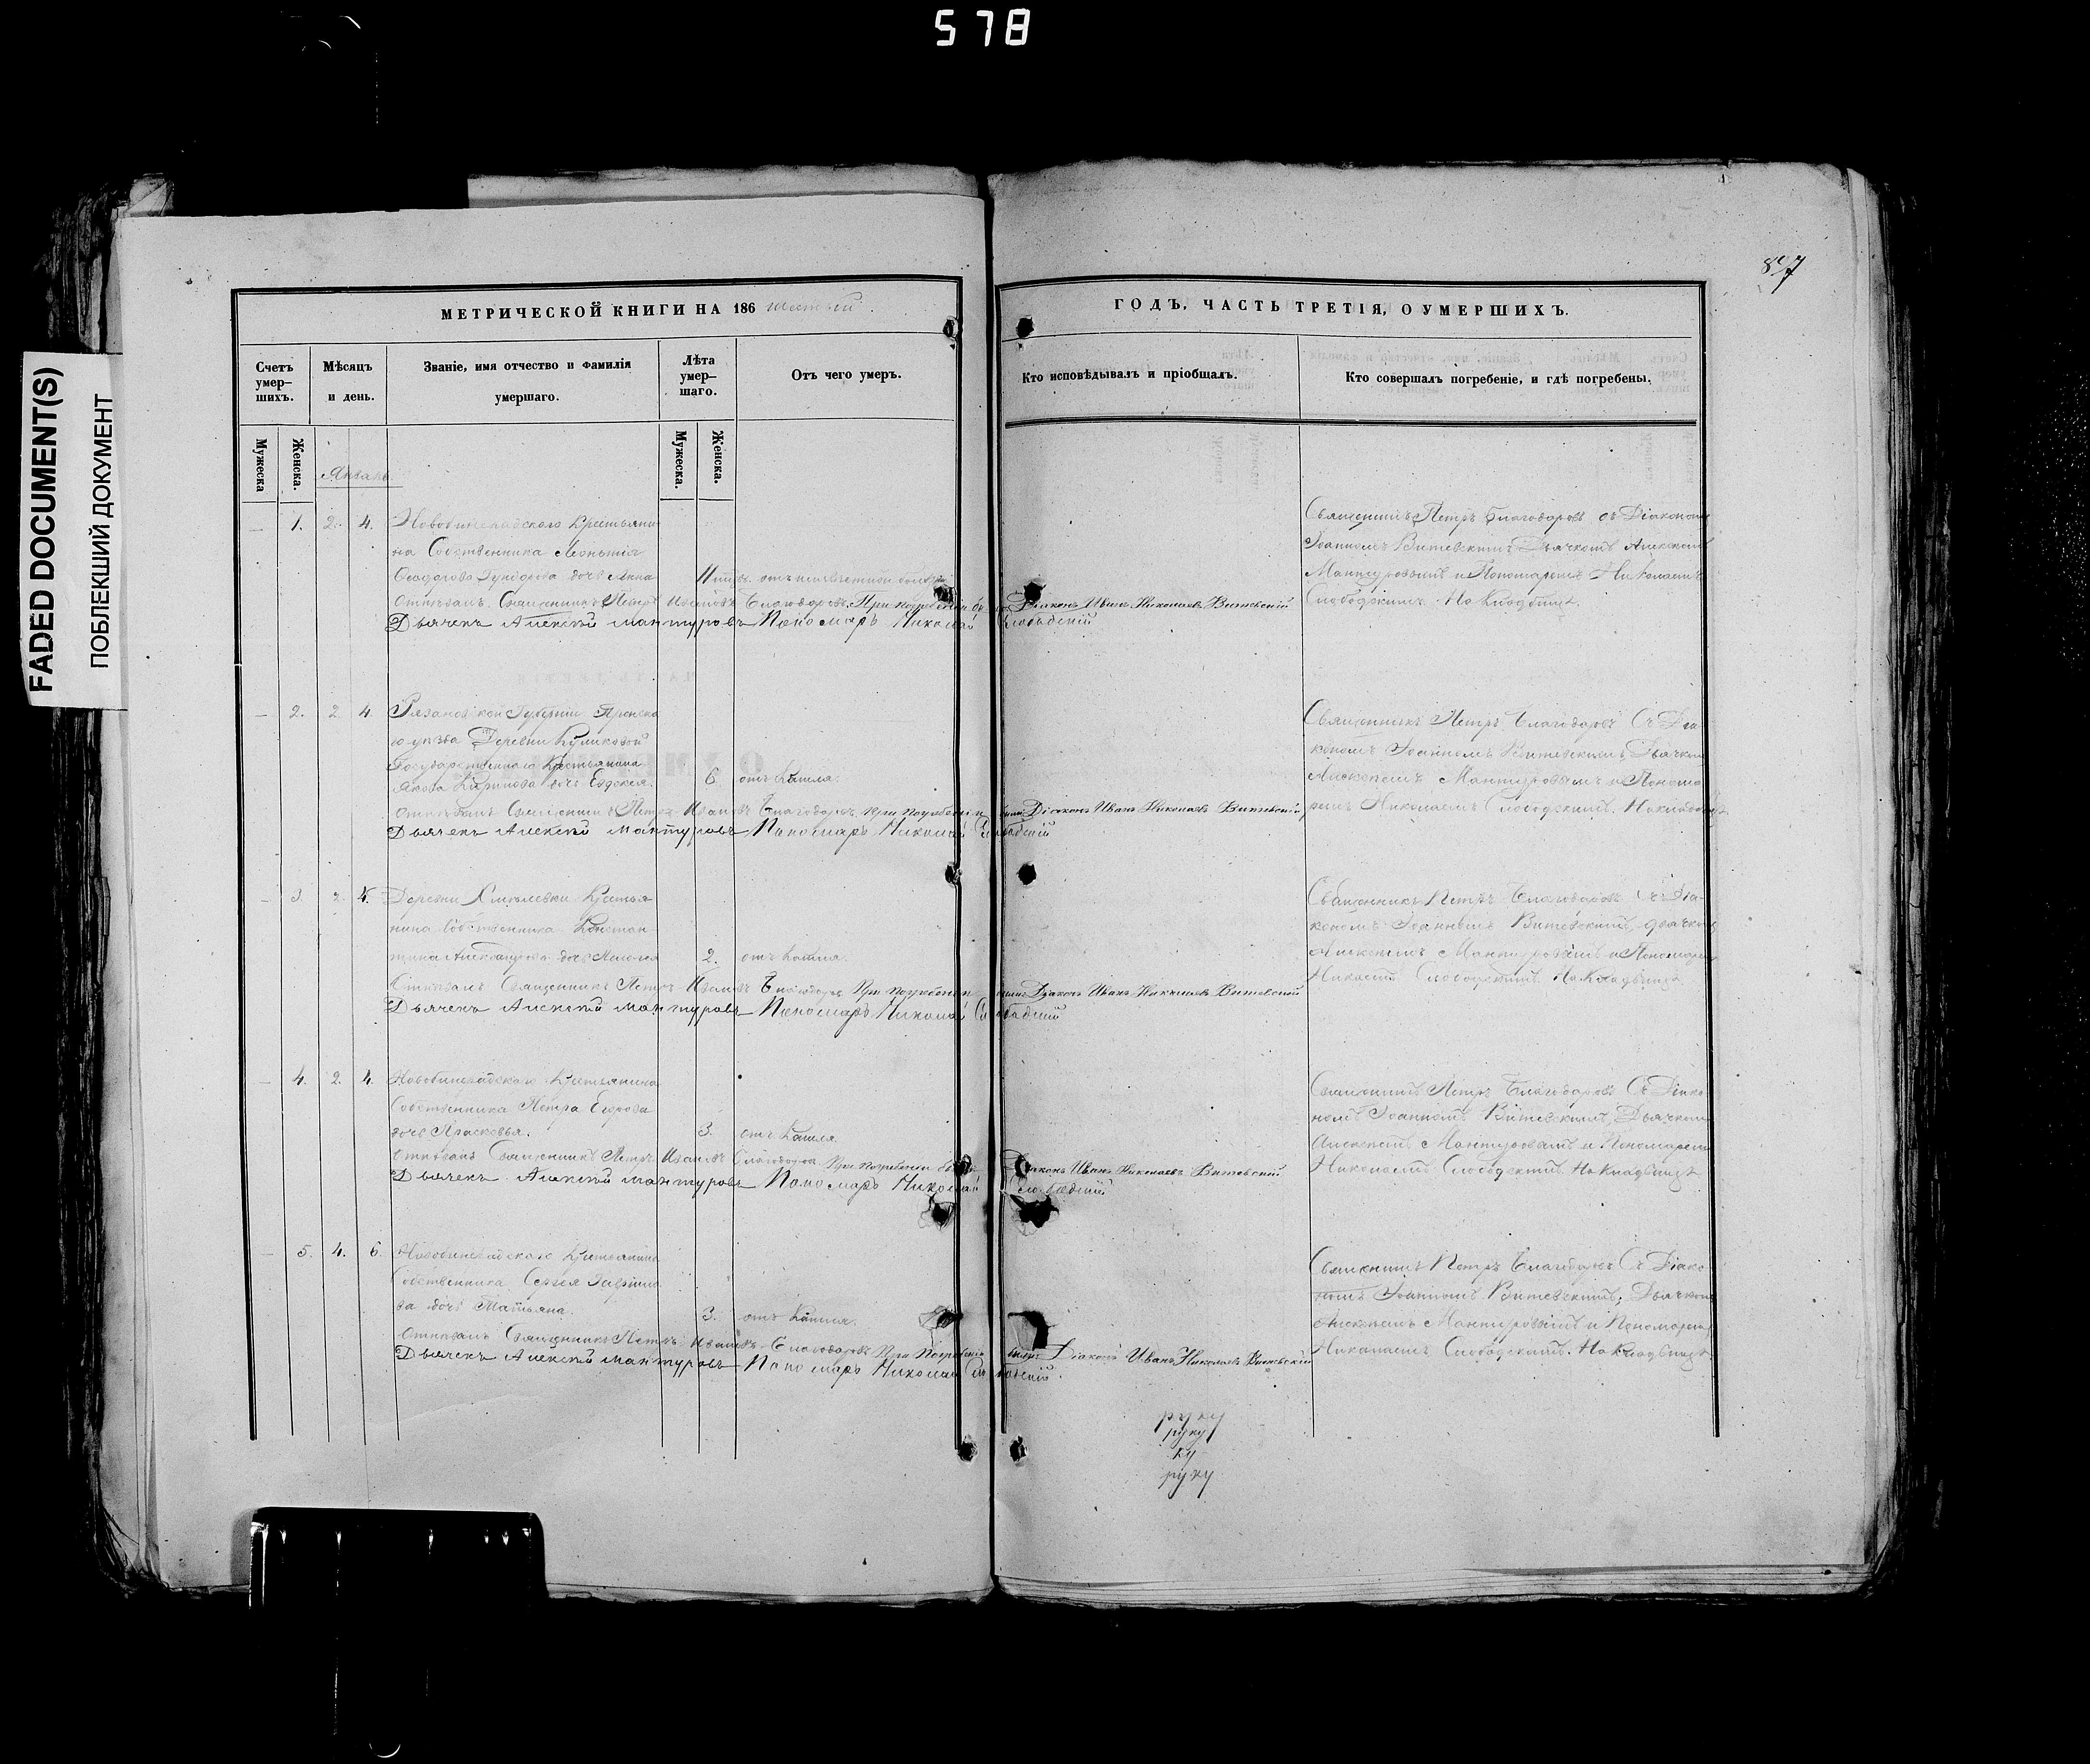 578
FADED DOCUMENT(S)
ПОБЛЕКШИЙ ДОКУМЕНТ
847
МЕТРИЧЕСКОЙ КНИГИ НА 186 шестый
ГОДЪ, ЧАСТЬ ТРЕТІЯ, О УМЕРШИХЪ.
Счетъ умер-шихъ.
Мѣсяцъ и день.
Званіе, имя отчество и фамилія умершаго.
Лѣта умер-шаго.
Отъ чего умеръ.
Кто исповѣдывалъ и пріобщалъ.
Кто совершалъ погребеніе, и гдѣ погребены.
Мужеска
Женска.
Мужеска.
Женска.
Январь
— 1. 2. 4.
Крестьяни-
на Собственника Леонтія
дочь Анна
отъ неизвѣстной
Отпѣвалъ Священникъ Петръ Ивановъ Благодаровъ. При погребеніи Діаконъ Иванъ Николаевъ Витевскій
Дьячекъ Алексѣй Мантуровъ Пономарь Николай Слободскій
Священникъ Петръ Благодаровъ съ Діакономъ
Іоанномъ Витевскимъ, Дьячкомъ Алексѣемъ
Мантуровымъ и Пономаремъ Николаемъ
Слободскимъ. На Кладбищѣ.
— 2. 2. 4.
Рязановской Губерніи Пронска-
го уѣзда Деревни Куликовой
Государственнаго Крестьянина
Якова Кирилова дочь Евдокея.
6. отъ Кашля.
Отпѣвалъ Священникъ Петръ Ивановъ Благодаровъ. При погребеніи были Діаконъ Иванъ Николаевъ Витевскій
Дьячекъ Алексѣй Мантуровъ Пономарь Николай Слободскій
Священникъ Петръ Благодаровъ Съ Діа-
кономъ Іоанномъ Витевскимъ, Дьячкомъ
Алексѣемъ Мантуровымъ и Понома-
ремъ Николаемъ Слободскимъ. На кладбищѣ
— 3. 2. 4.
Деревни Хмѣлевки Крестья-
нина Собственника Констан-
тина Александрова дочь
2. отъ Кашля.
Отпѣвалъ Священникъ Петръ Ивановъ Благодаровъ При погребеніи были Діаконъ Иванъ Николаевъ Витевскій
Дьячекъ Алексѣй Мантуровъ Пономарь Николай Слободскій
Священникъ Петръ Благодаровъ Съ Діа-
кономъ Іоанномъ Витевскимъ, дьячкомъ
Алексѣемъ Мантуровымъ и Пономаремъ
Слободскимъ. На Кладбищѣ
— 4. 2. 4.
Крестьянина
Собственника Петра Егорова
дочь Прасковья.
3. отъ Кашля
Отпѣвалъ Священникъ Петръ Ивановъ Благодаровъ При погребеніи Діаконъ Иванъ Николаевъ Витевскій
Дьячекъ Алексѣй Мантуровъ Пономарь Николай Слободскій
Священникъ Петръ Благодаровъ Съ Діако-
номъ Іоанномъ Витевскимъ, Дьячкомъ
Алексѣемъ Мантуровымъ и Пономаремъ
Николаемъ Слободскимъ. На Кладбищѣ
— 5. 4. 6.
Крестьянина
Собственника Сергея Гаврило-
ва дочь Татьяна.
3. отъ Кашля.
Отпѣвалъ Священникъ Петръ Ивановъ Благодаровъ При Погребеніи были Діаконъ Иванъ Николаевъ Витевскій
Дьячекъ Алексѣй Мантуровъ Пономарь Николай Слободскій.
Священникъ Петръ Благодаровъ Съ Діако-
номъ Іоанномъ Витевскимъ, Дьячкомъ
Алексѣемъ Мантуровымъ и Пономаремъ
Николаемъ Слободскимъ. На Кладбищѣ.
руку
руку
ку
руку